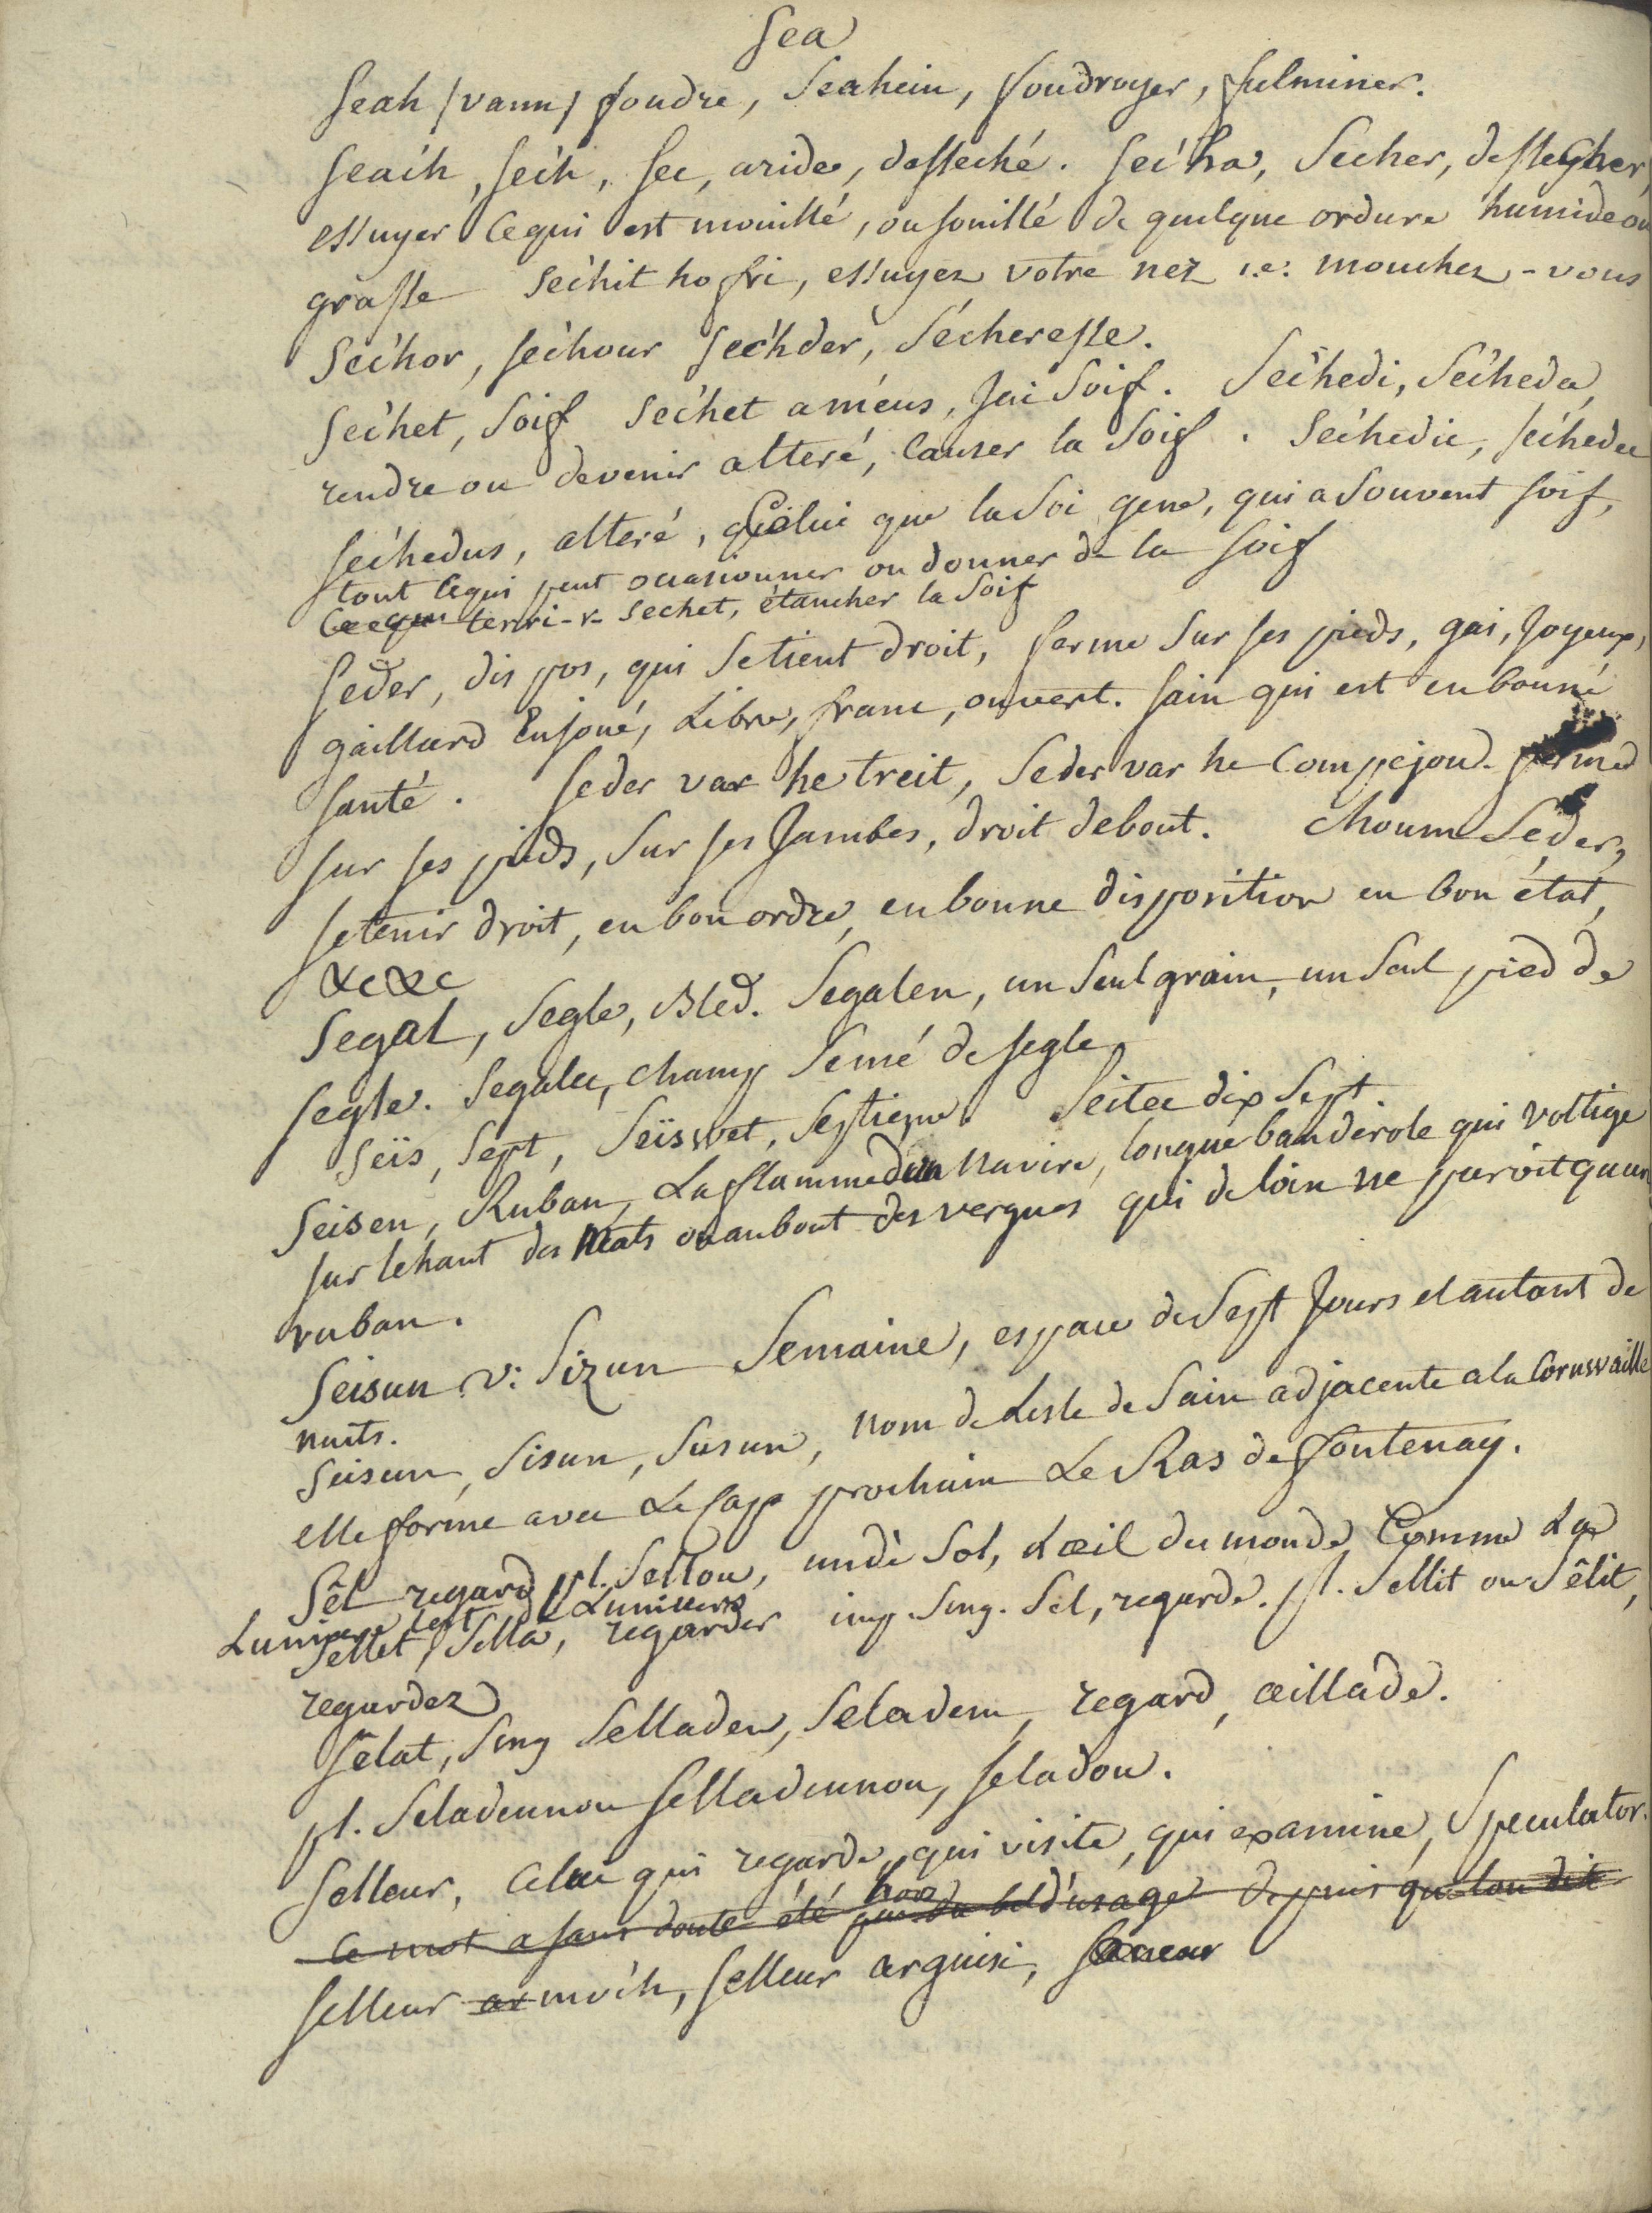 Sea
Seah (vann) foudre, Seahein, foudroyer, fulminer.
Seac'h, sec'h, sec, aride, desseché. sec'ha, Secher, dessecher,
essuyer Cequi est mouillé, ou souillé de quelque ordure humide ou
grasse Sec'hit ho fri, essuyez votre nez i.e. mouchez-vous
Sec'hor, sec'hour sec'hder, Sécheresse.
Sec'het, Soif Sec'het améus, Jai Soif. Sec'hedi, Sec'heda,
rendre ou devenir alteré, Causer la Soif. Sec'hedic, sec'hedec
Sec'hedus, alteré, Celui que la Soi gene, qui a Souvent soif,
tout Cequi peut occasionner ou donner de la soif
terri-r-sechet, étancher la Soif
Seder, dis pos, qui Setient droit, ferme Sur ses pieds, gai, Joyeux,
gaillard Enjoué, Libre, franc, ouvert. sain qui est en bonne
santé. Seder var he treit, Seder var he Compejou. ferme
sur ses pieds, Sur ses Jambes, droit debout. choum Seder,
setenir droit, en bon ordre, en bonne disposition en bon état,
&c&c
Segal, Segle, Bled. Segalen, un Seul grain, un Seul pied de
segle. Segalec, champ Semé de segle
Seïs, Sept, Seïsvet, Septieme. Seitec dix Sept.
Seisen, Ruban, La flamme dun Navire, longue banderole qui voltige
sur lehaut des Mats ou aubout des vergues qui de loin ne paroit quun
ruban.
Seisun v: Sizun Semaine, espace de Sept Jours et autant de
nuits.
Seisun, Sisun, Susun, nom de Lisle de Sain adjacente a la Cornwaille
elle forme avec Le Cap prochain Le Ras de fontenay.
Sêl regard pl. Sellou, undè Sol, L'œil du monde, Comme La
Lumiere l'est de Lunivers
Sellet, Sella, regarder imp. Sing. Sel, regarde. pl. Sellit ou Sêlit,
regardez
Sêlat, SingSelladen, Seladenn, regard, œillade.
pl. Seladennou Selladennou, seladou.
Selleur, Celui qui regarde, qui visite, qui examine, Speculator.
Ce mot a sans doute été hors d'usage depuis que lon dit
Selleur ar moc'h, selleur arguisi,